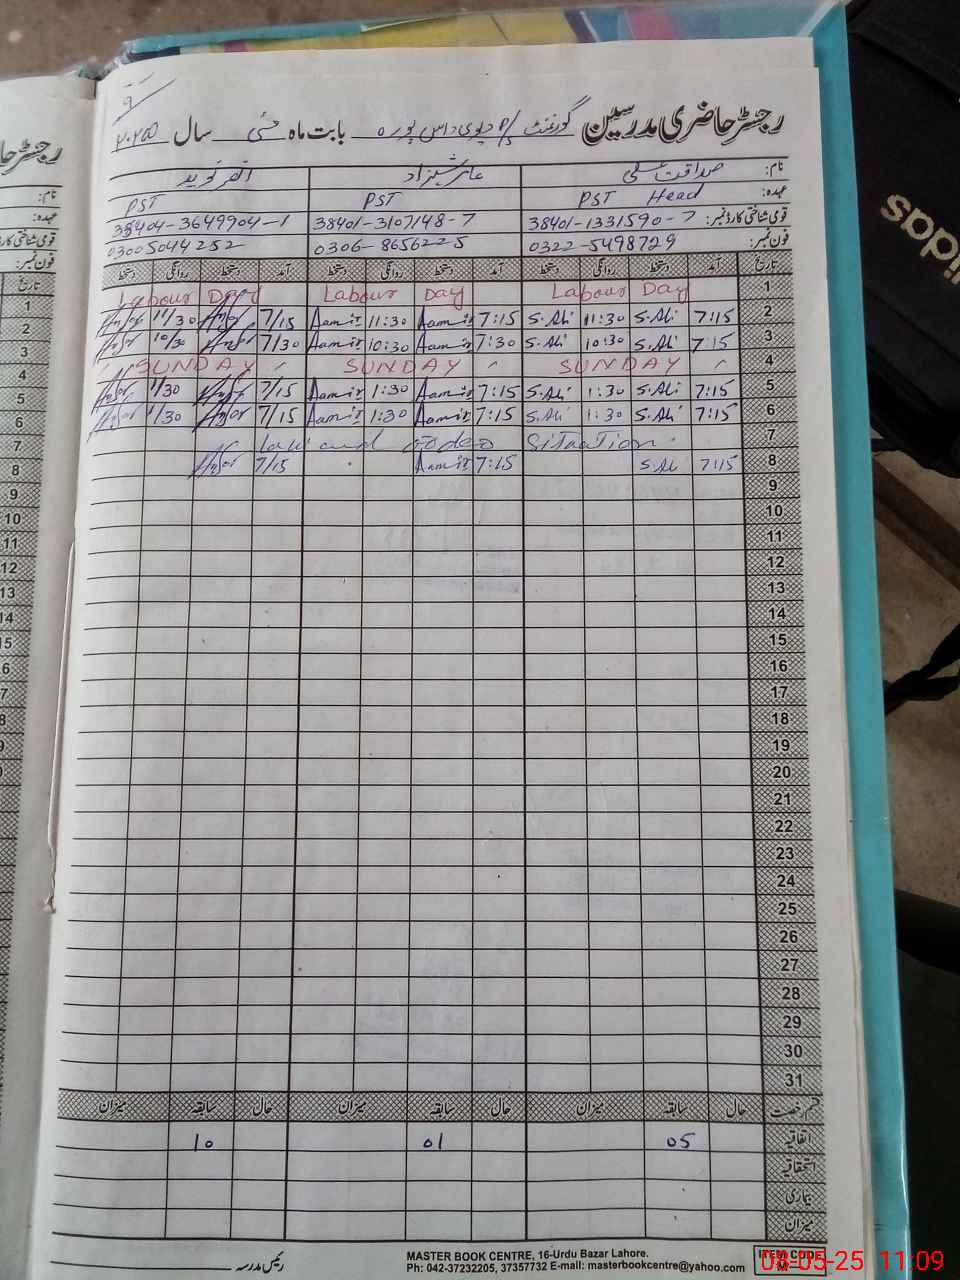 رجسٹر حاضری مدرسین گورنمنٹ P/S دیوی داس پورہ بابت ماہ مئی سال ۲۰۲۵
نام: صداقت علی عامر شہزاد
عہدہ: PST Head PST PST
قومی شناختی کارڈ نمبر: 38401-1331590-7 38401-3107148-7 38404-3649904-1
فون نمبر: 0322-5498729 0306-8656225 03005044252
تاریخ آمد دستخط روانگی دستخط آمد دستخط روانگی دستخط آمد دستخط روانگی دستخط
1 Labour Day Labour Day Labour Day
2 7:15 S.Ali 11:30 S.Ali 7:15 Aamir 11:30 Aamir 7/15 11/30
3 7:15 S.Ali 10:30 S.Ali 7:30 Aamir 10:30 Aamir 7/30 10/30
4 SUNDAY SUNDAY SUNDAY
5 7:15 S.Ali 1:30 S.Ali 7:15 Aamir 1:30 Aamir 7/15 1/30
6 7:15 S.Ali 1:30 S.Ali 7:15 Aamir 1:30 Aamir 7/15 1/30
7 Law and order Situation
8 7:15 S.Ali 7:15 Aamir 7/15
9
10
11
12
13
14
15
16
17
18
19
20
21
22
23
24
25
26
27
28
29
30
31
قسم رخصت حال سابقہ میزان حال سابقہ میزان حال سابقہ میزان
اتفاقیہ 05 01 10
استحقاقیہ
بیماری
میزان
رئیس مدرسہ
MASTER BOOK CENTRE, 16-Urdu Bazar Lahore.
Ph: 042-37232205, 37357732 E-mail: masterbookcentre@yahoo.com
ITEM CODE
08-05-25 11:09
adidas